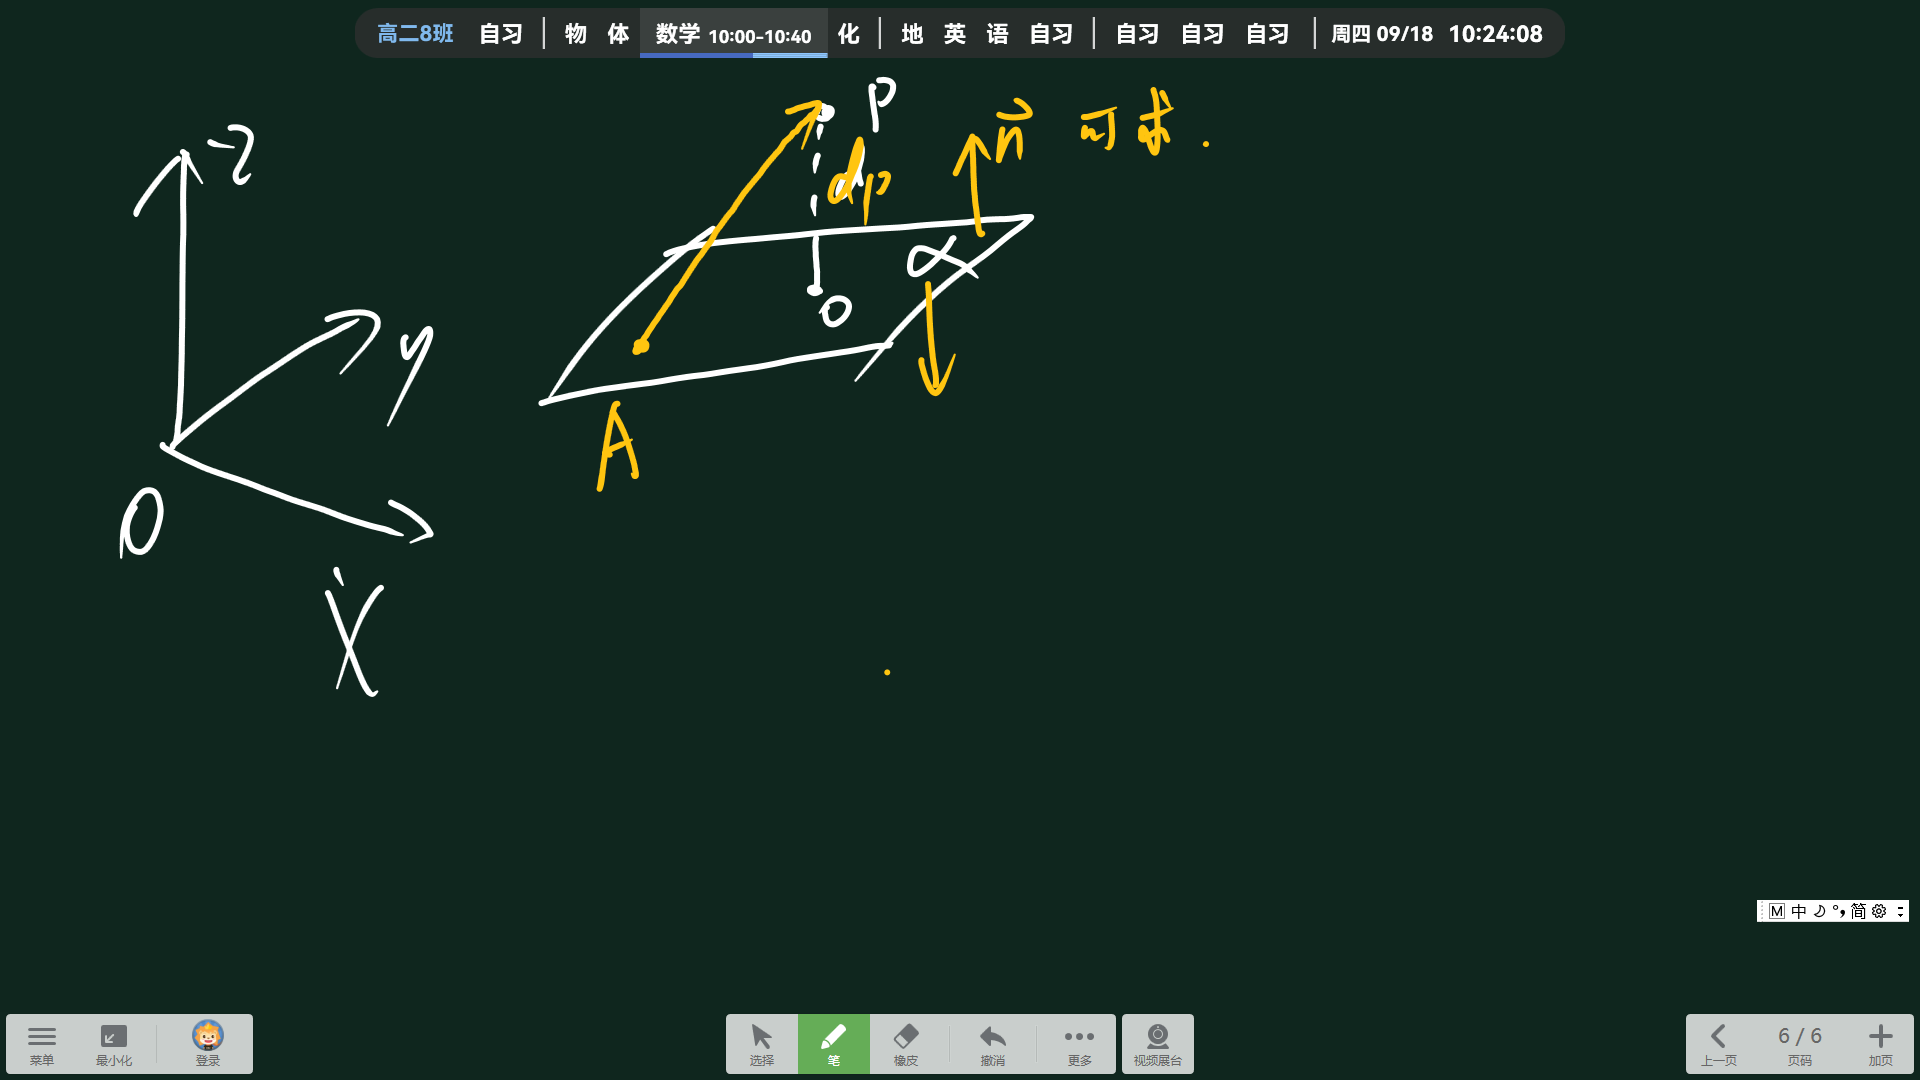 高二8班 自习 | 物 体 数学 10:00-10:40 化 | 地 英 语 自习 | 自习 自习 自习 | 周四 09/18 10:24:08
z
y
O
x
P
dp
n 可求.
α
O
A
M 中 简
菜单 最小化 登录
选择 笔 橡皮 撤消 更多 视频展台
上一页 6 / 6 页码 加页